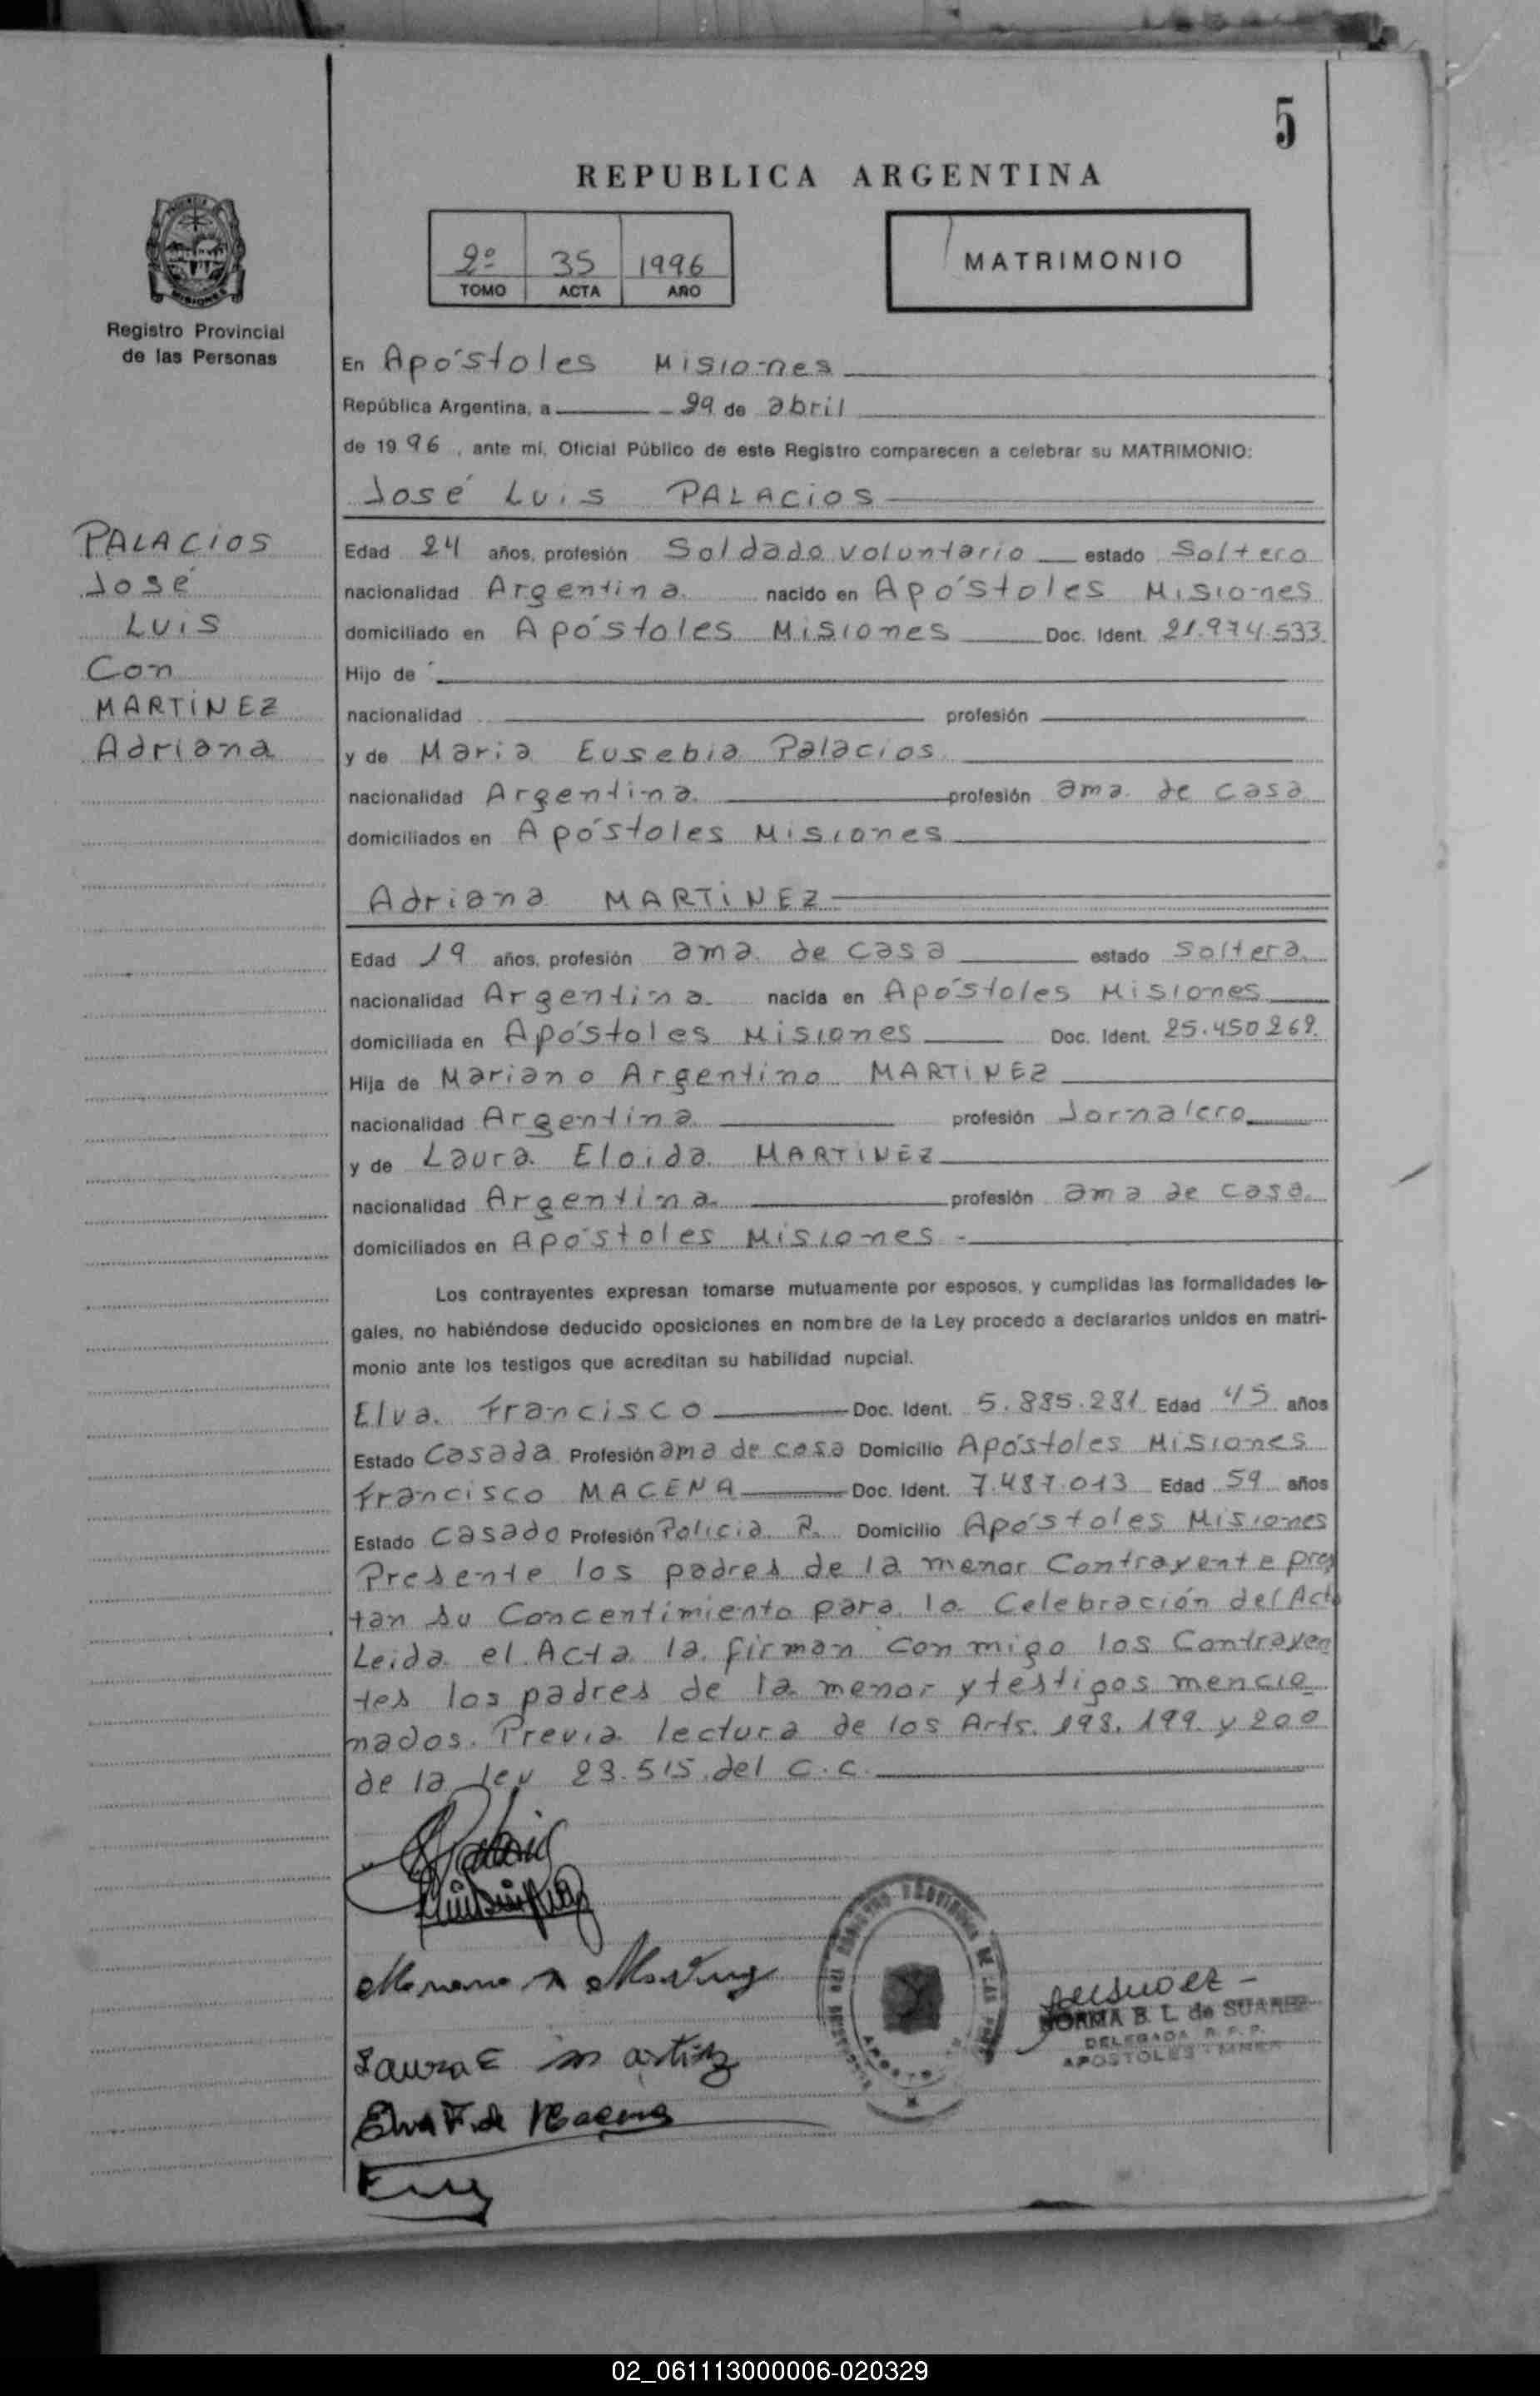 5
REPUBLICA ARGENTINA
2º 35 1996
TOMO ACTA AÑO
MATRIMONIO
Registro Provincial
de las Personas
En Apóstoles Misiones
República Argentina, a 29 de abril
de 1996, ante mí, Oficial Público de este Registro comparecen a celebrar su MATRIMONIO:
José Luis PALACIOS
PALACIOS
José
Luis
Con
MARTINEZ
Adriana
Edad 24 años, profesión Soldado voluntario estado Soltero
nacionalidad Argentina nacido en Apóstoles Misiones
domiciliado en Apóstoles Misiones Doc. Ident. 21.974.533
Hijo de
nacionalidad profesión
y de Maria Eusebia Palacios
nacionalidad Argentina profesión ama de casa
domiciliados en Apóstoles Misiones
Adriana MARTINEZ
Edad 19 años, profesión ama de casa estado Soltera
nacionalidad Argentina nacida en Apóstoles Misiones
domiciliada en Apóstoles Misiones Doc. Ident. 25.450269
Hija de Mariano Argentino MARTINEZ
nacionalidad Argentina profesión Jornalero
y de Laura Eloida MARTINEZ
nacionalidad Argentina profesión ama de casa
domiciliados en Apóstoles Misiones -
Los contrayentes expresan tomarse mutuamente por esposos, y cumplidas las formalidades le-
gales, no habiéndose deducido oposiciones en nombre de la Ley procedo a declararlos unidos en matri-
monio ante los testigos que acreditan su habilidad nupcial.
Elva Francisco Doc. Ident. 5.885.281 Edad 45 años
Estado Casada Profesión ama de casa Domicilio Apóstoles Misiones
Francisco MACENA Doc. Ident. 7.487.013 Edad 59 años
Estado Casado Profesión Policia R. Domicilio Apóstoles Misiones
Presente los padres de la menor Contrayente pres
tan su Concentimiento para la Celebración del Acto
Leida el Acta la firman conmigo los Contrayen
tes los padres de la menor y testigos mencio
nados. Previa lectura de los Arts. 198. 199. y 200
de la ley 23.515 del C.C.
Laura E Martinez
Elva F. de Macena
NORMA B. L. de SUAREZ
DELEGADA R. P. P.
APOSTOLES - MNES
02_061113000006-020329